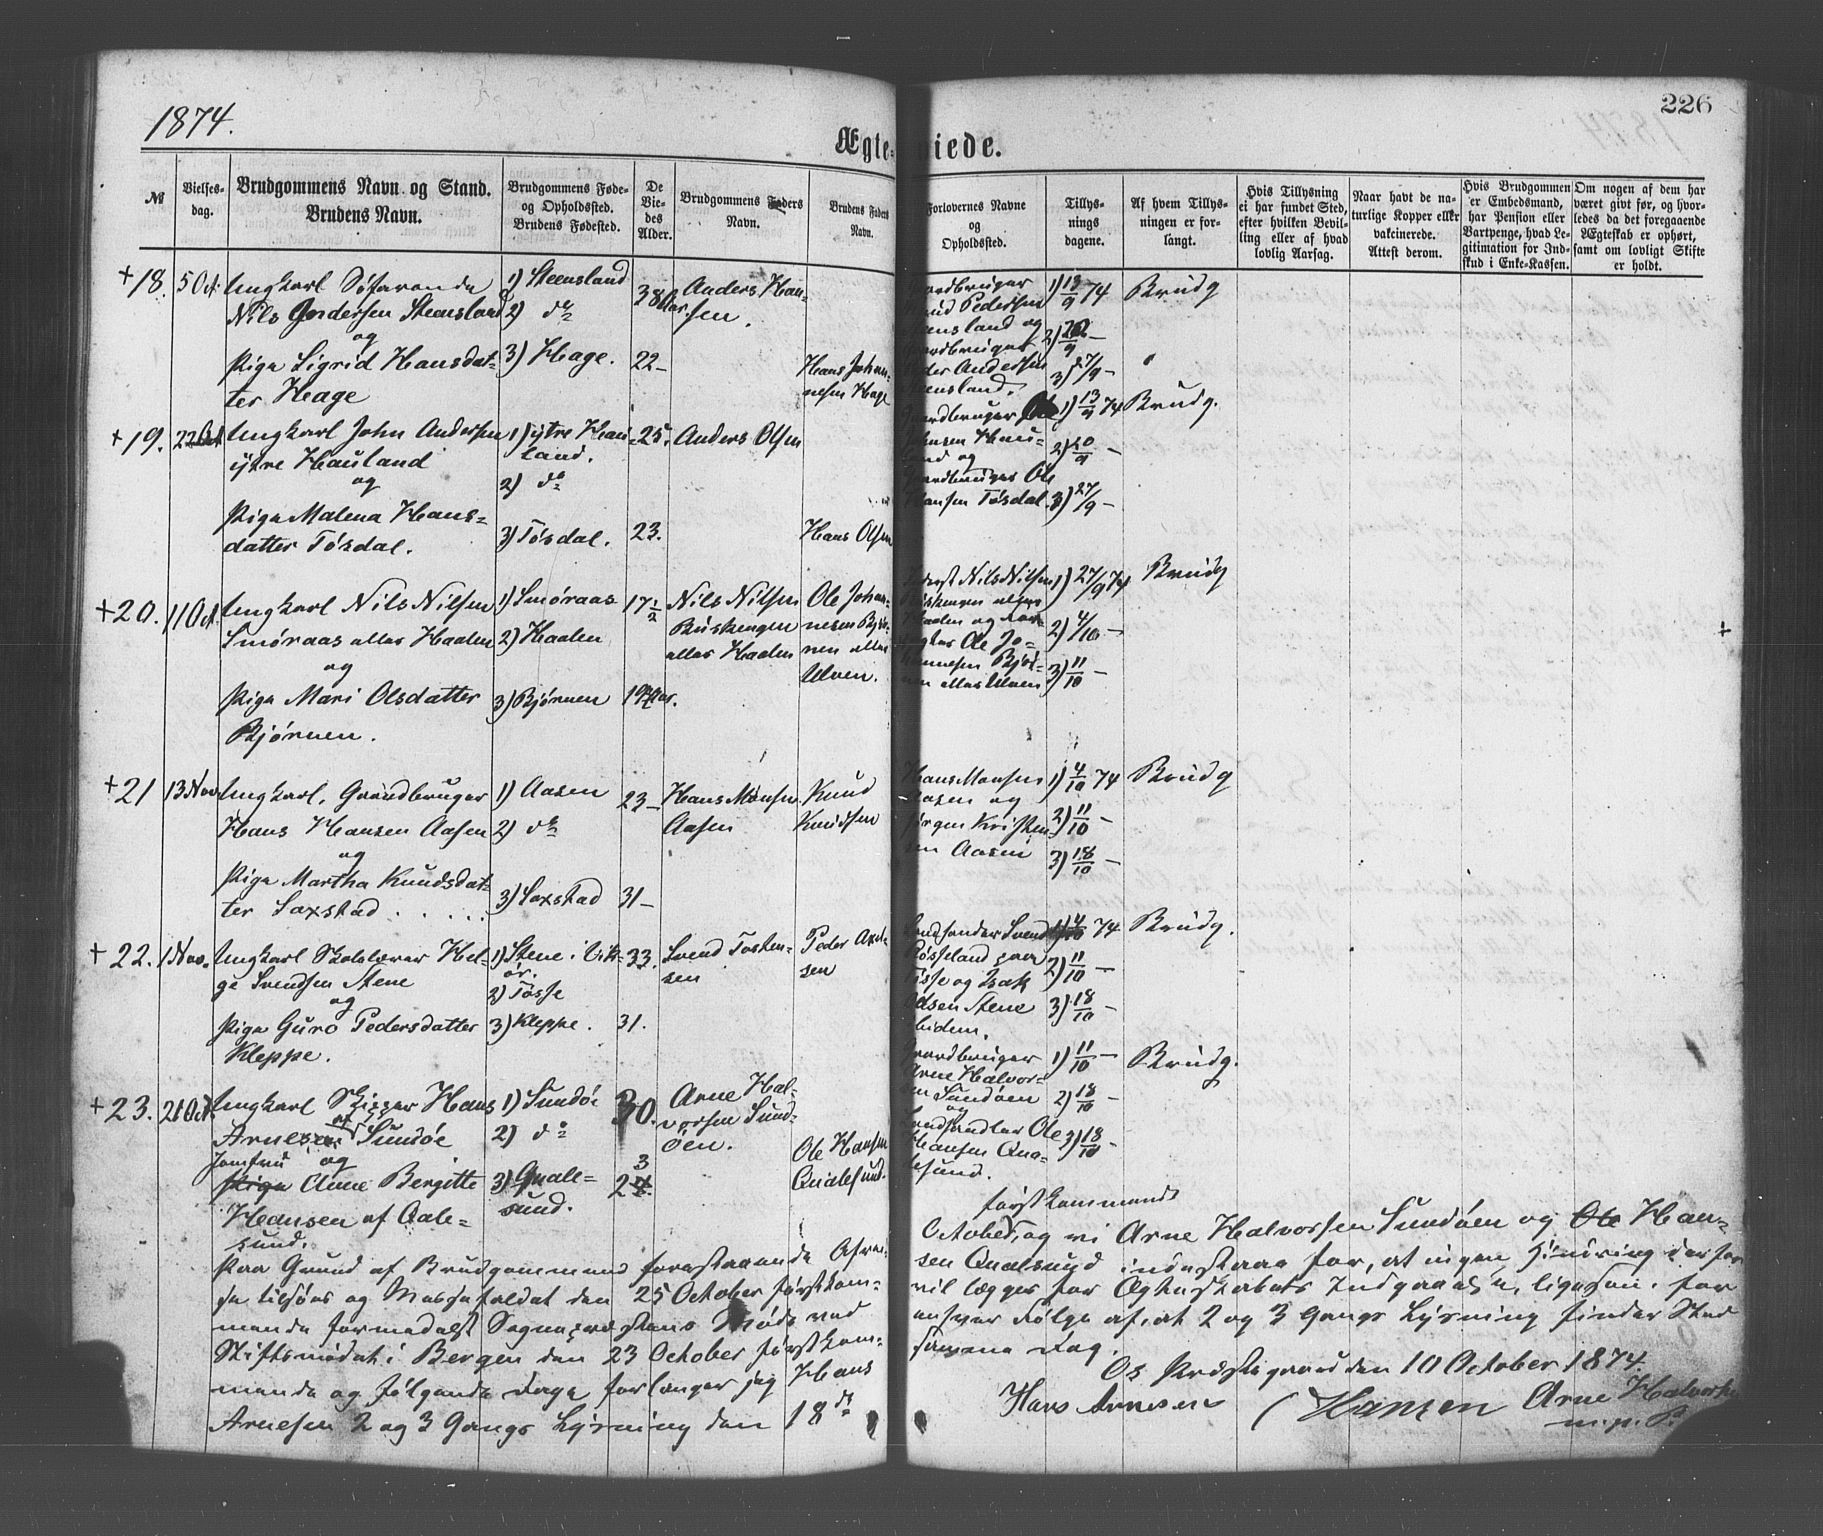 1874.
226
Ægte- viede.
№
Vielses-
dag.
Brudgommens Navn og Stand.
Brudens Navn.
Brudgommens Føde-
og Opholdssted.
Brudens Fødested.
De
Vie-
des
Alder.
Brudgommens Faders
Navn.
Brudens Faders
Navn.
Forlovernes Navne
og
Opholdssted.
Tillys-
nings
dagene.
Af hvem Tillys-
ningen er for-
langt.
Hvis Tillysning
ei har fundet Sted,
efter hvilken Bevil-
ling eller af hvad
lovlig Aarsag.
Naar havt de na-
turlige Kopper eller
vakcinerede.
Attest derom.
Hvis Brudgommen
er Embedsmand,
har Pension eller
Vartpenge, hvad Le-
gitimation for Ind-
skud i Enke-Kassen.
Om nogen af dem har
været givt før, og hvor-
ledes da det foregaaende
Ægteskab er ophørt,
samt om lovligt Skifte
er holdt.
+18. 5 Oct.
Ungkarl Søfarende
Nils Andersen Steensland
og
Pige Sigrid Hansdat-
ter Hage
1) Steensland
2) do
3) Hage.
38 Aar.
22 –
Anders Han-
sen.
Hans Johan-
nesen Hage
Pedersen
ensland og
Andersen
eensland.
1) 13/9 74
2) 20/9 –
3) 27/9 –
Brudg
+19. 22 Oct
Ungkarl John Andersen
ytre Hauland
og
Pige Malena Hans-
datter Tøsdal.
1) ytre Hau-
land.
2) do
3) Tøsdal.
25.
23.
Anders Olsen
Hans Olsen
Gaardbruger Ole
Hau-
land og
Gaardbruger Ole
Hansen Tøsdal.
1) 13/9 74
2) 20/9 –
3) 27/9 –
Brudg.
+20. 11 Oct.
Ungkarl Nils Nilsen
Smøraas eller Haalen
og
Pige Mari Olsdatter
Bjørnen.
1) Smøraas
2) Haalen
3) Bjørnen
17 1/2
19 Aar.
Nils Nilsen
Buskengen
eller Haalen
Ole Johan-
nesen Bjør-
nen eller
Ulven.
Nils Nilsen
eller
Haalen og
Ole Jo-
hannesen Bjør-
nen eller Ulven
1) 27/9 74
2) 4/10 –
3) 11/10 –
Brudg
+
+21 13 Nov
Ungkarl, Gaardbruger
Hans Hansen Aasen
og
Pige Martha Knudsdat-
ter Saxstad . . . . .
1) Aasen
2) do
3) Saxstad
23 –
31 –
Hans Monsen
Aasen
Knud
Knudsen
Hans Monsen
Aasen og
Jørgen Kristen-
sen Aasen
1) 4/10 74
2) 11/10 –
3) 18/10 –
Brudg
+22. 1 Nov.
Ungkarl Skolelærer Hel-
ge Svendsen Stene
og
Pige Guro Pedersdatter
Kleppe.
1) Stene i Vik-
ør.
2) Tøsse
3) Kleppe.
33.
31.
Svend Torsten-
sen
Peder Axel-
sen
Svend
Røsseland paa
Tøsse og Isak
Stene
ibidem.
1) 4/10 74
2) 11/10 –
3) 18/10 –
Brudg.
+23. 26 Oct
Ungkarl Skipper Hans
Arnesen af Sundöe
Jomfru og
Pige Anne Bergitte
Hansen af Qale-
sund.
1) Sundöe
2) do
3) Quale-
sund.
30.
23
Arne Hal-
vorsen Sund-
öen.
Ole Hansen
Qualesund.
Gaardbruger
Arne Halvor-
sen Sundöen
og
Landhandler Ole
Hansen Qua-
lesund.
1) 11/10 –
2) 18/10 –
3) 18/10 –
Brudg.
Paa Grund af Brudgommens forestaaende Afrei-
se tilsøes og Messefaldet den 25 October førstkom-
mende formedelst Sognepræstens Møde ved
Stiftsmødet i Bergen den 23 October førstkom-
mende og følgende Dage forlanger jeg Hans
Arnesen 2 og 3 Gangs Lysning den 18de
førstkommende
October, og vi Arne Halvorsen Sundöen og Ole Han-
sen Qualesund indestaae for, at ingen Hindring derfor
vil lægges for Ægteskabets Indgaaelse, ligesom for
ansvar Følge af, at 2 og 3 Gangs Lysning finder Sted
samme Dag.
Os Præstegaard den 10 October 1874.
Hans Arnesen Hansen Arne Halvorsen
m. p. P.